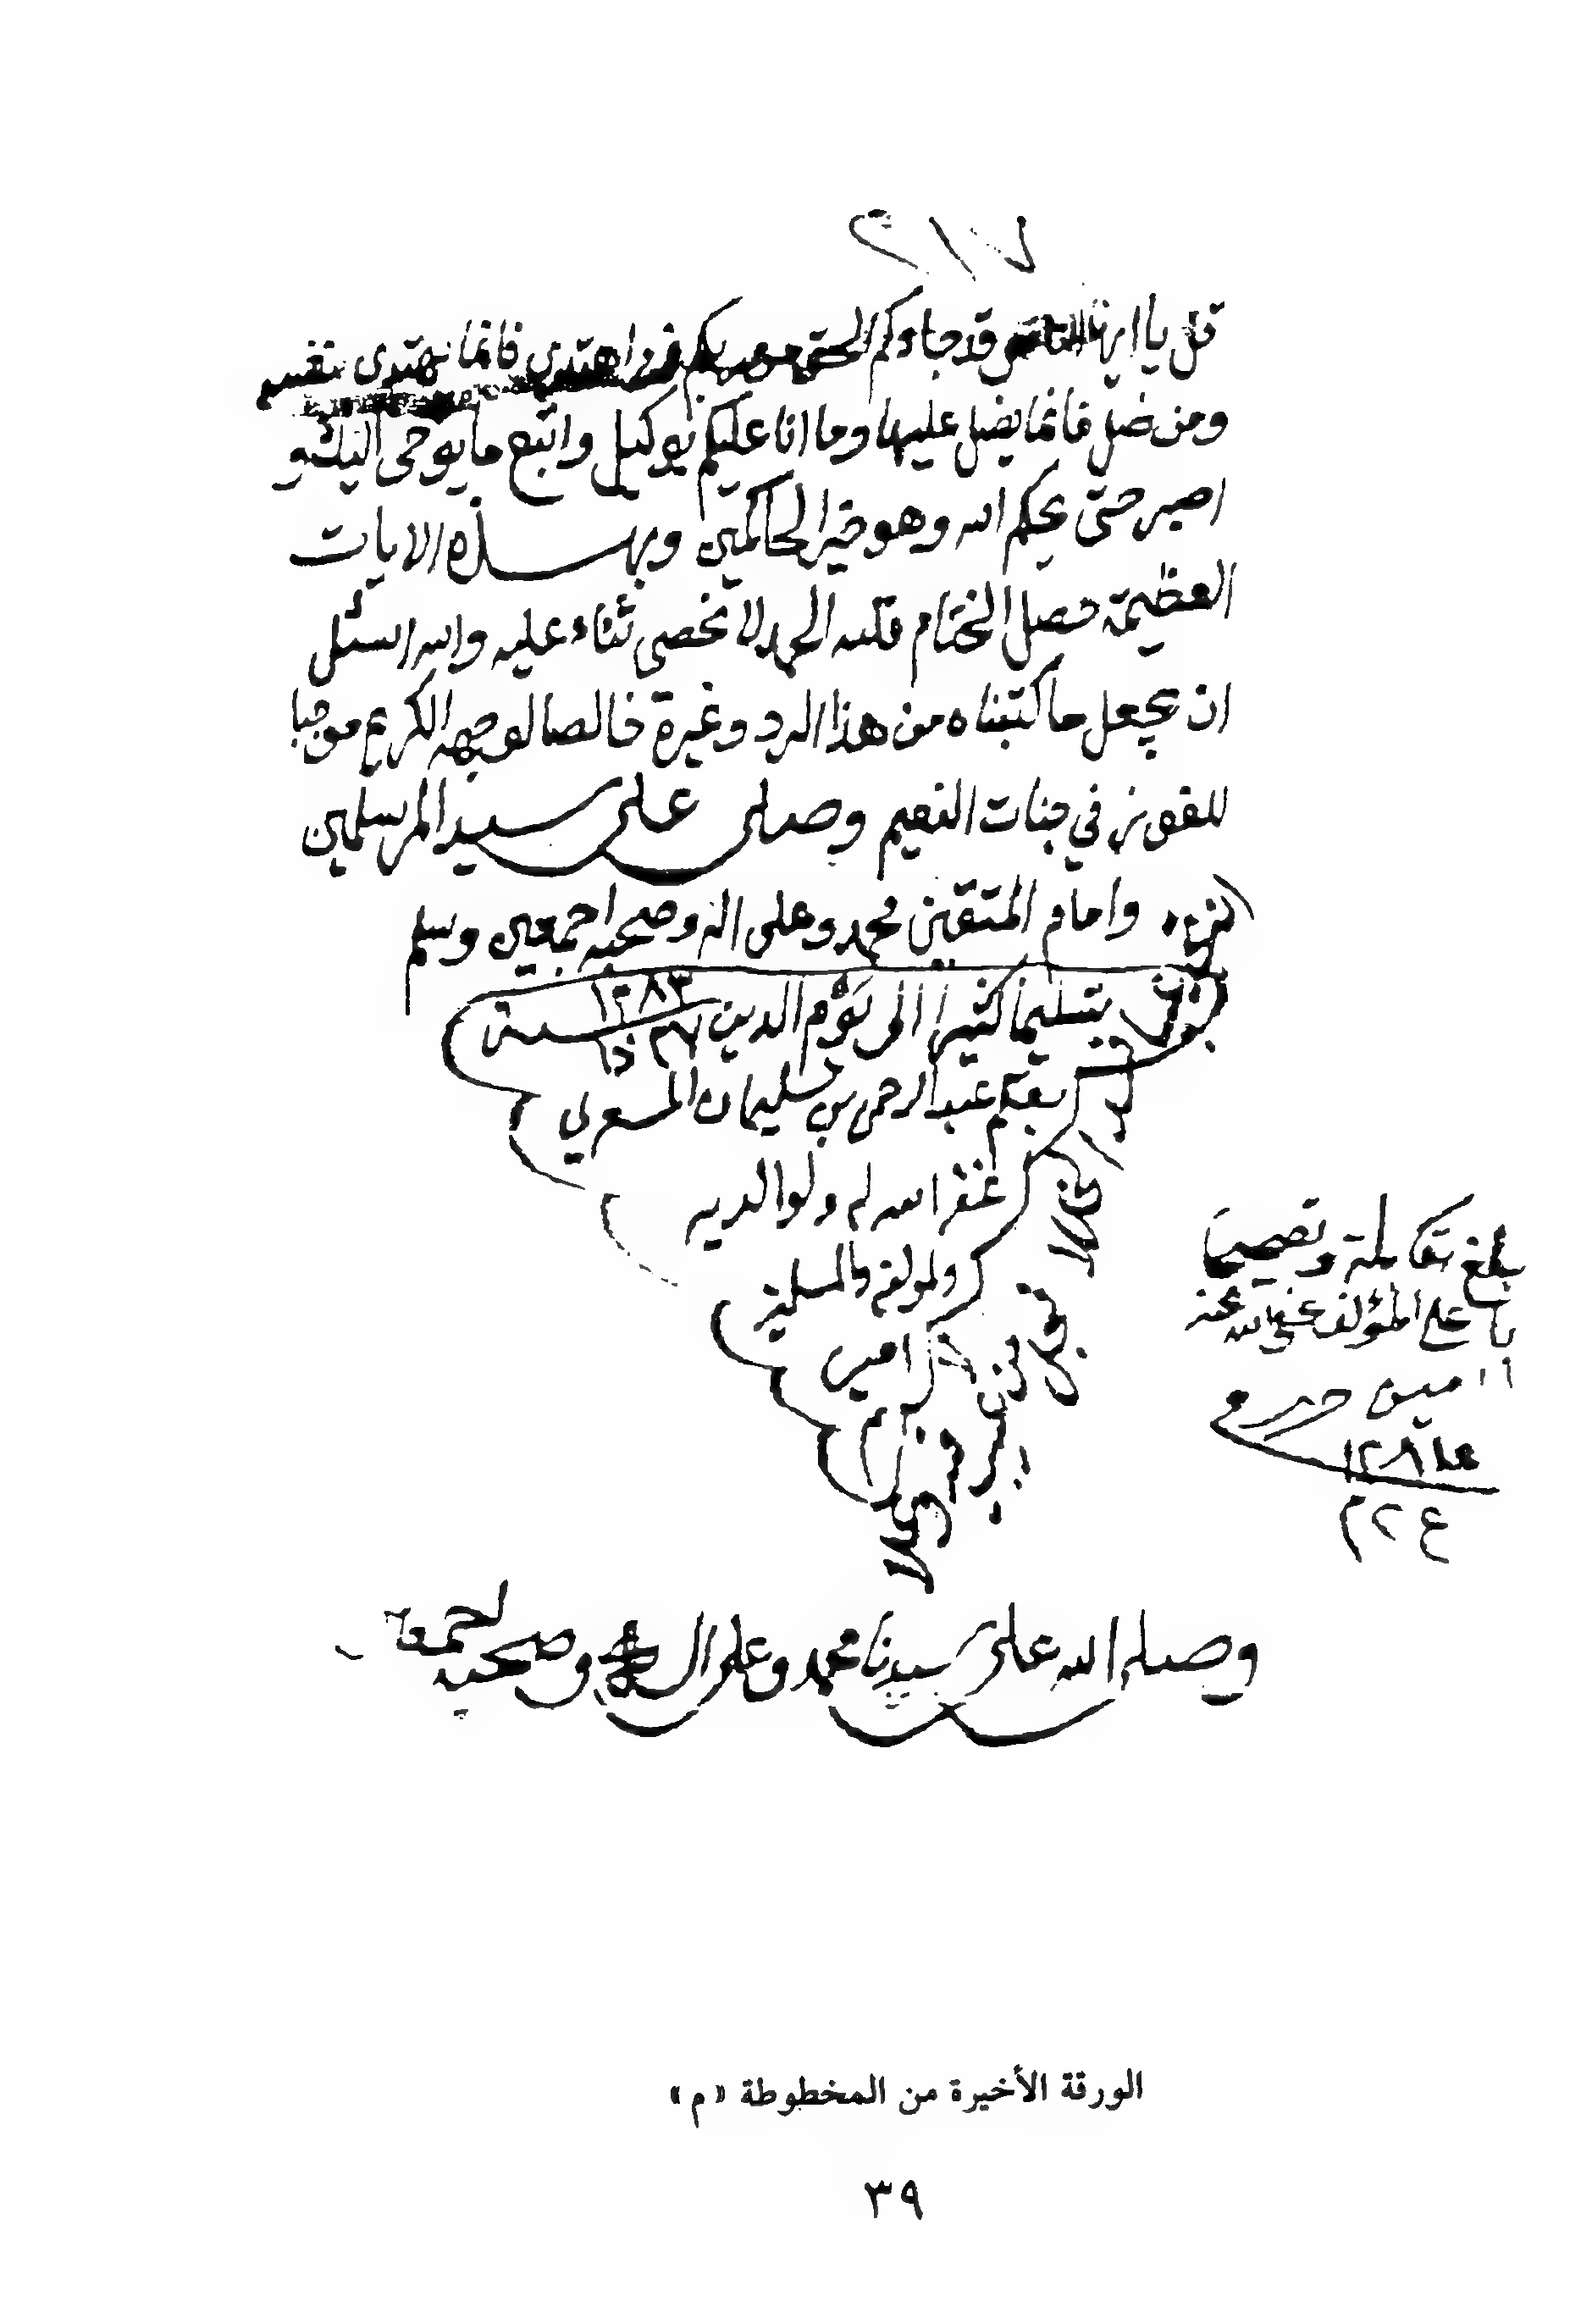 ٢١٧
قل يا ايها الناس قد جاءكم الحق من ربكم فمن اهتدى فانما يهتدى لنفسه
ومن ضل فانما يضل عليها وما انا عليكم بوكيل واتبع ما يوحى اليك و
اصبر حتى يحكم الله وهو خير الحاكمين وبهذه الايات
العظيمة حصل الختام فلله الحمد لا نحصى ثناء عليه والله اسئل
ان يجعل ما كتبناه من هذا الرد وغيره خالصا لوجهه الكريم موجبا
للفوز في جنات النعيم وصلى على سيد المرسلين
وامام المتقين محمد وعلى اله وصحبه اجمعين وسلم
تسليما كثيرا الى يوم الدين سنة ١٢٨٣
بقلم عبد الرحمن بن سليمان المسعري
غفر الله له ولوالديه
ولمولفه والمسلمين
امين
بلغ مقابلة وتصحيحا
على المؤلف عفى الله عنه
امين
وصلى الله على سيدنا محمد وعلى ال وصحبه
الورقة الأخيرة من المخطوطة « م »
٣٩